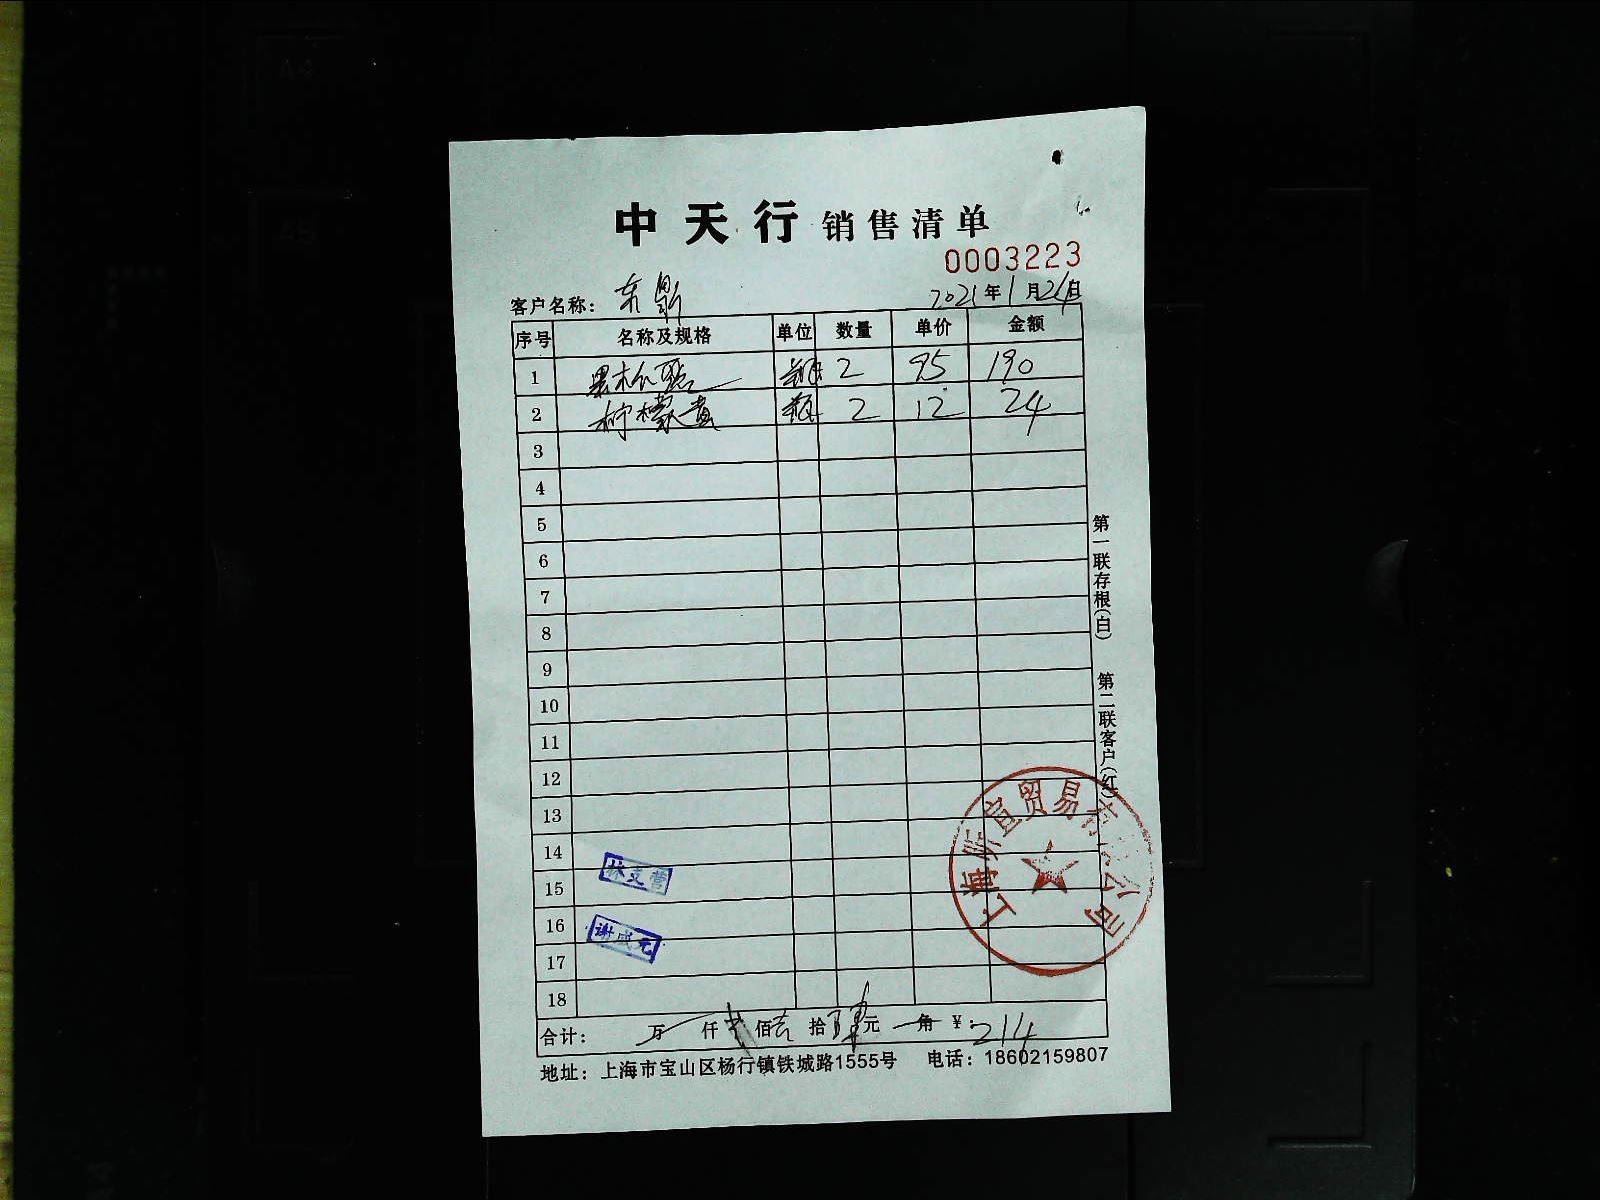 中天行销售清单
0003223
客户名称： 东鼎 2021年1月24日
序号 名称及规格 单位 数量 单价 金额
1 2 95 190
2 柠檬黄 瓶 2 12 24
3
4
5
6
7
8
9
10
11
12
13
14
15
16
17
18
合计： 万 仟 佰 拾 元 角 ￥：214
地址：上海市宝山区杨行镇铁城路1555号 电话：18602159807
第一联存根(白) 第二联客户(红)
上海 宣贸易有限公司
林支营
谢成元